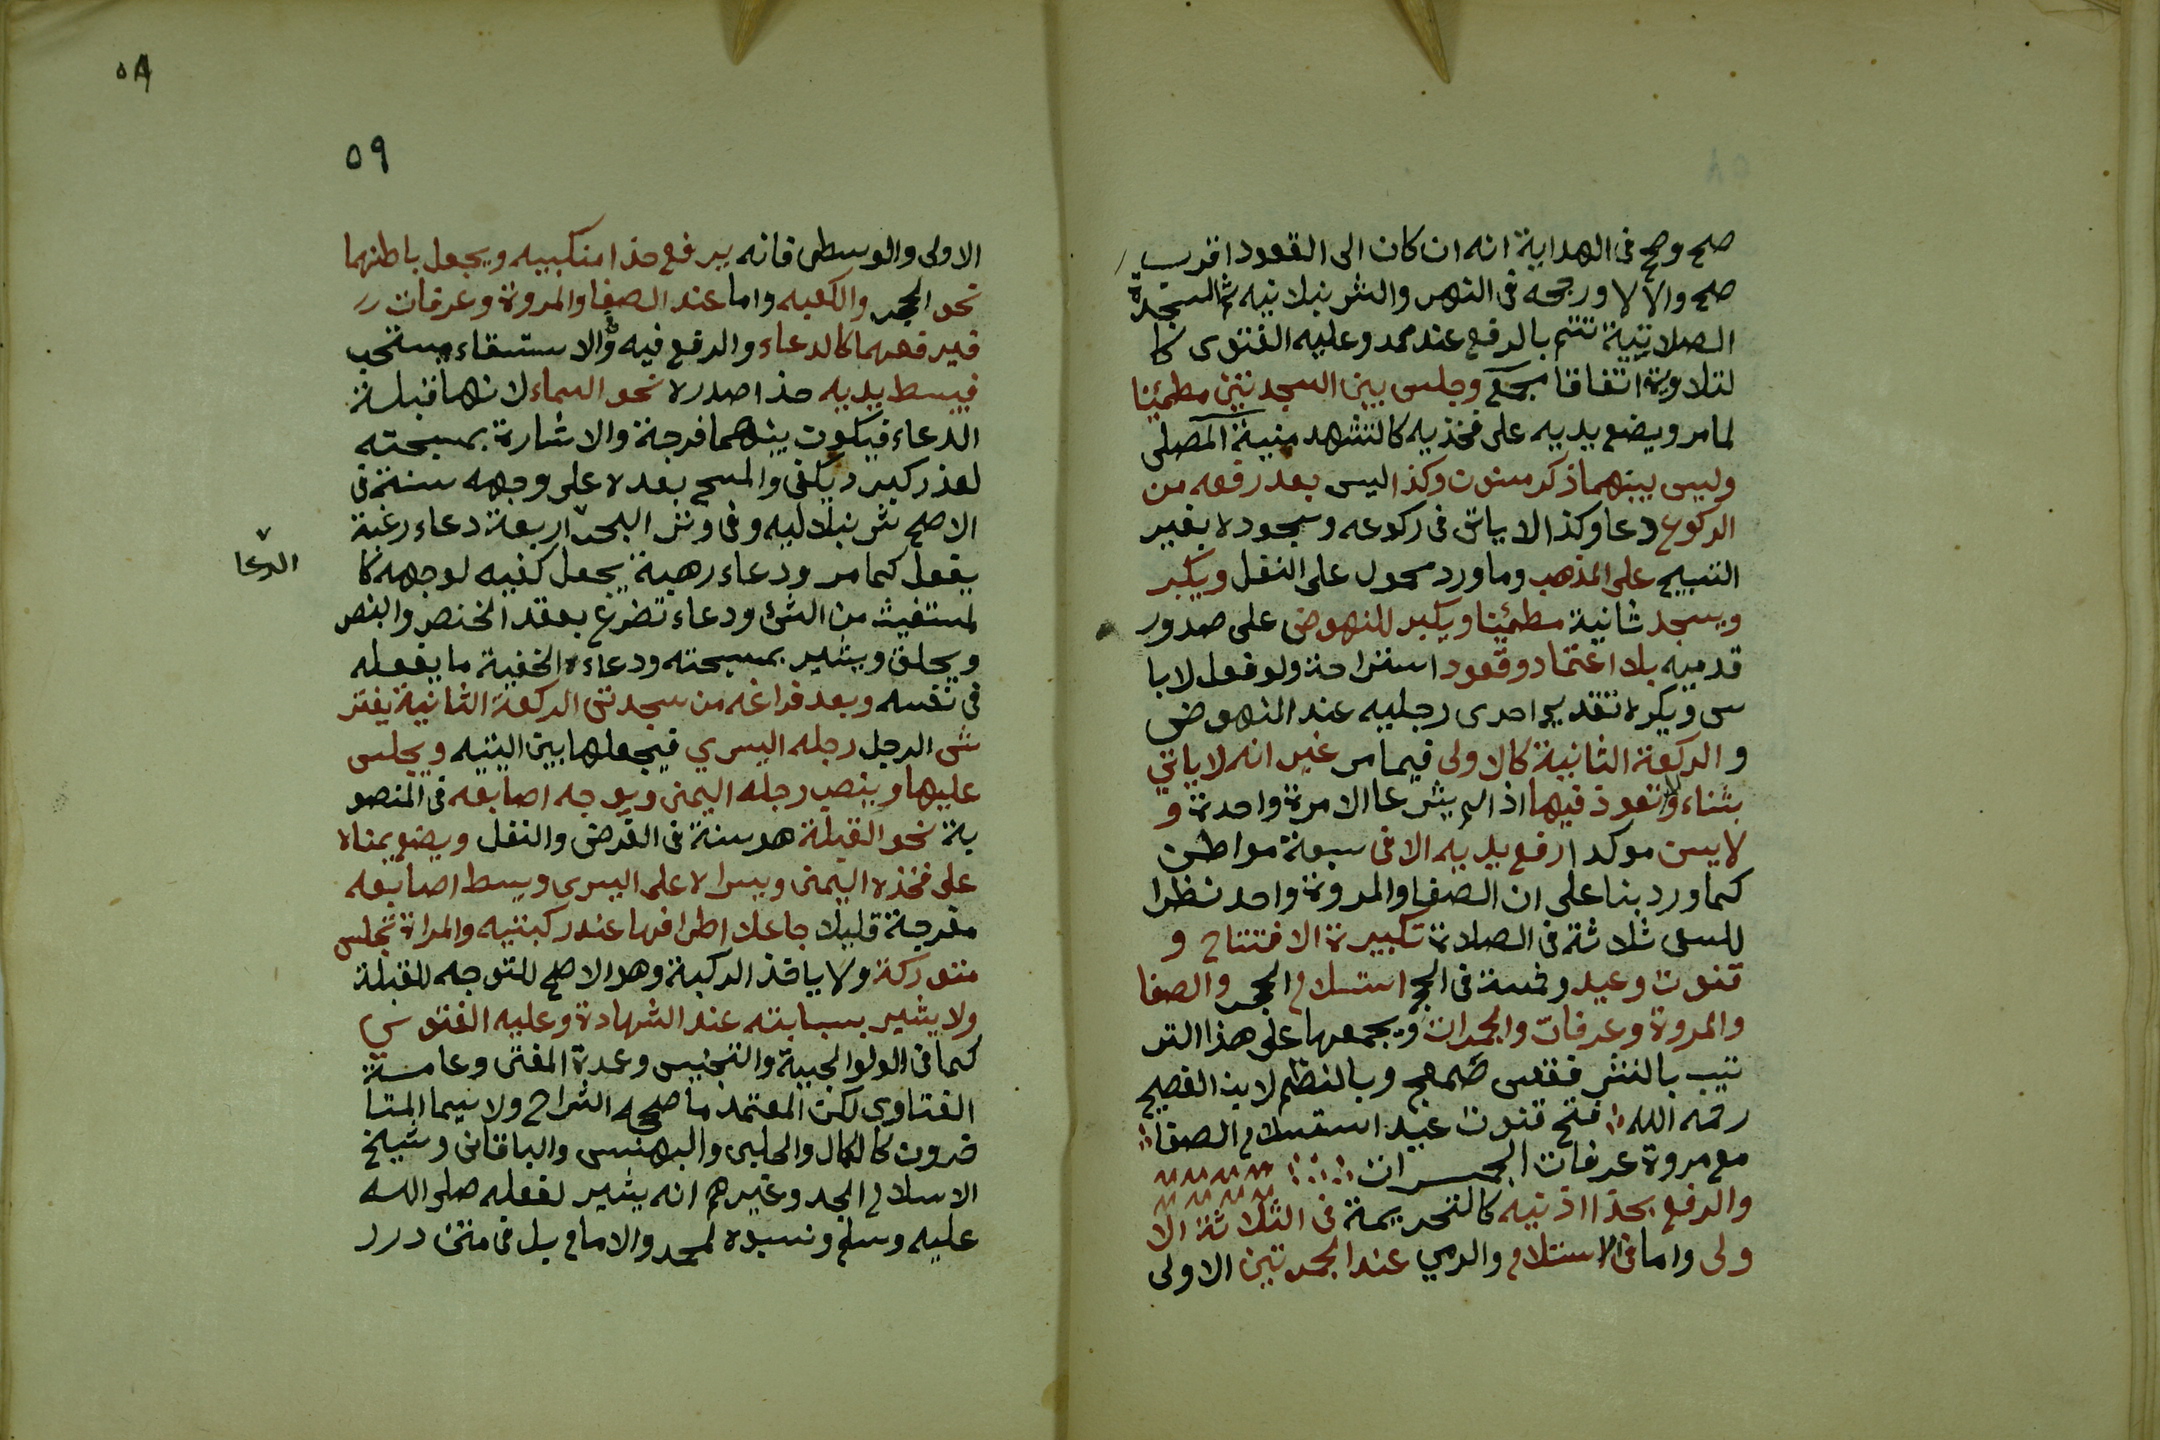 صح وصح فى الهداية انه ان كان الى القعود اقرب
صح والا لا ورجحه فى النهر والشرنبلانيه ثم السجدة
الصلاتيية تتم بالرفع عند محمد وعليه الفتوى كا
لتلاوية اتفاقا مجمع وجلس بين السجدتين مطمئنا
لما مر ويضع يديه على فخذيه كالتشهد منية المصلى
وليس بينهما ذكر مسنون وكذا ليس بعد رفعه من
الركوع دعا وكذا لا ياتى فى ركوعه وسجوده بغير
التسبيح على المذهب وما ورد محمول على النفل ويكبر
ويسجد ثانية مطمئنا ويكبر للنهوض على صدور
قدميه بلا اعتماد وقعود استراحة ولو فعل لا با
س ويكره تقديم احدى رجليه عند النهوض
والركعة الثانية كالاولى فيما مر غير انه لا ياتي
بثناء ولا تعوذ فيها اذ لم يشرعا الا مرة واحدة و
لا يسن موكدا رفع يديه الا فى سبعة مواطن
كما ورد بنا على ان الصفا والمروة واحد نظرا
للسعى ثلاثة فى الصلاة تكبيرة الافتتاح و
قنوت وعيد وخمسة فى الحج استلام الحجر والصفا
والمروة وعرفات والجمرات ويجمعها على هذا التر
تيب بالنثر فقعس صمعج وبالنظم لابن الفصيح
رحمه الله فتح قنوت عيد استلام الصفا
مع مروة عرفات الجمرات
والرفع بحذا اذنيه كالتحريمة فى الثلاثة الا
ولى واما فى الاستلام والرمي عند الجمرتين الاولى
٥٨
٥٩
الاولى والوسطى فانه يرفع حذا منكبيه ويجعل باطنهما
نحو الحجر والكعبه واما عند الصفا والمروة وعرفات
فيرفعهما كالدعاء والرفع فيه وفى الاستسقاء مستحب
فيبسط يديه حذا صدره نحو السماء لانها قبلة
الدعاء فيكون بينهما فرجة والاشارة بمسبحته
لعذر كبرد يكفى والمسح بعده على وجهه سنة فى
الاصح شرنبلاليه وفى وتر البحر اربعة دعاء رغبة
يفعل كما مر ودعاء رهبة يجعل كفيه لوجهه كا
لمستغيث من الشئ ودعاء تضرع بعقد الخنصر والبنصر
ويحلق ويشير بمسبحته ودعاء الخفية ما يفعله
فى نفسه وبعد فراغه من سجدتى الركعة الثانية يفتر
ش الرجل رجله اليسري فيجعلها بين اليتيه ويجلس
عليها وينصب رجله اليمنى ويوجه اصابعه فى المنصو
بة نحو القبلة هو سنة فى الفرض والنفل ويضع يمناه
على فخذه اليمنى ويسراه على اليسرى ويبسط اصابعه
مفرجة قليلا جاعلا اطرافها عند ركبتيه والمراة تجلس
متوركة ولا ياخذ الركبة وهو الاصح للتوجه للقبلة
ولا يشير بسبابته عند الشهادة وعليه الفتوى
كما فى الولوالجية والتجنيس وعمدة المفتى وعامة
الفتاوى لكن المعتمد ما صححه الشراح ولا سيما المتا
خرون كالكمال والحلبى والبهنسى والباقانى وشيخ
الاسلام الجد وغيرهم انه يشير لفعله صلى الله
عليه وسلم ونسبوه لمحمد والامام بل فى متن درر
الدعا